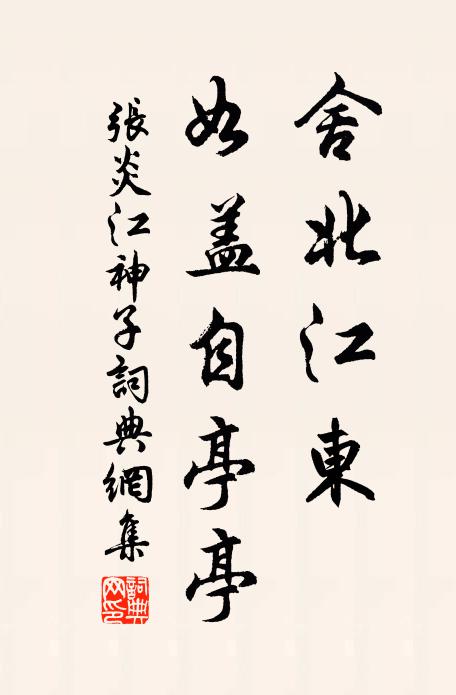 舍北江東
如盖自亭亭
張炎江神子詞典網集
詞典网印